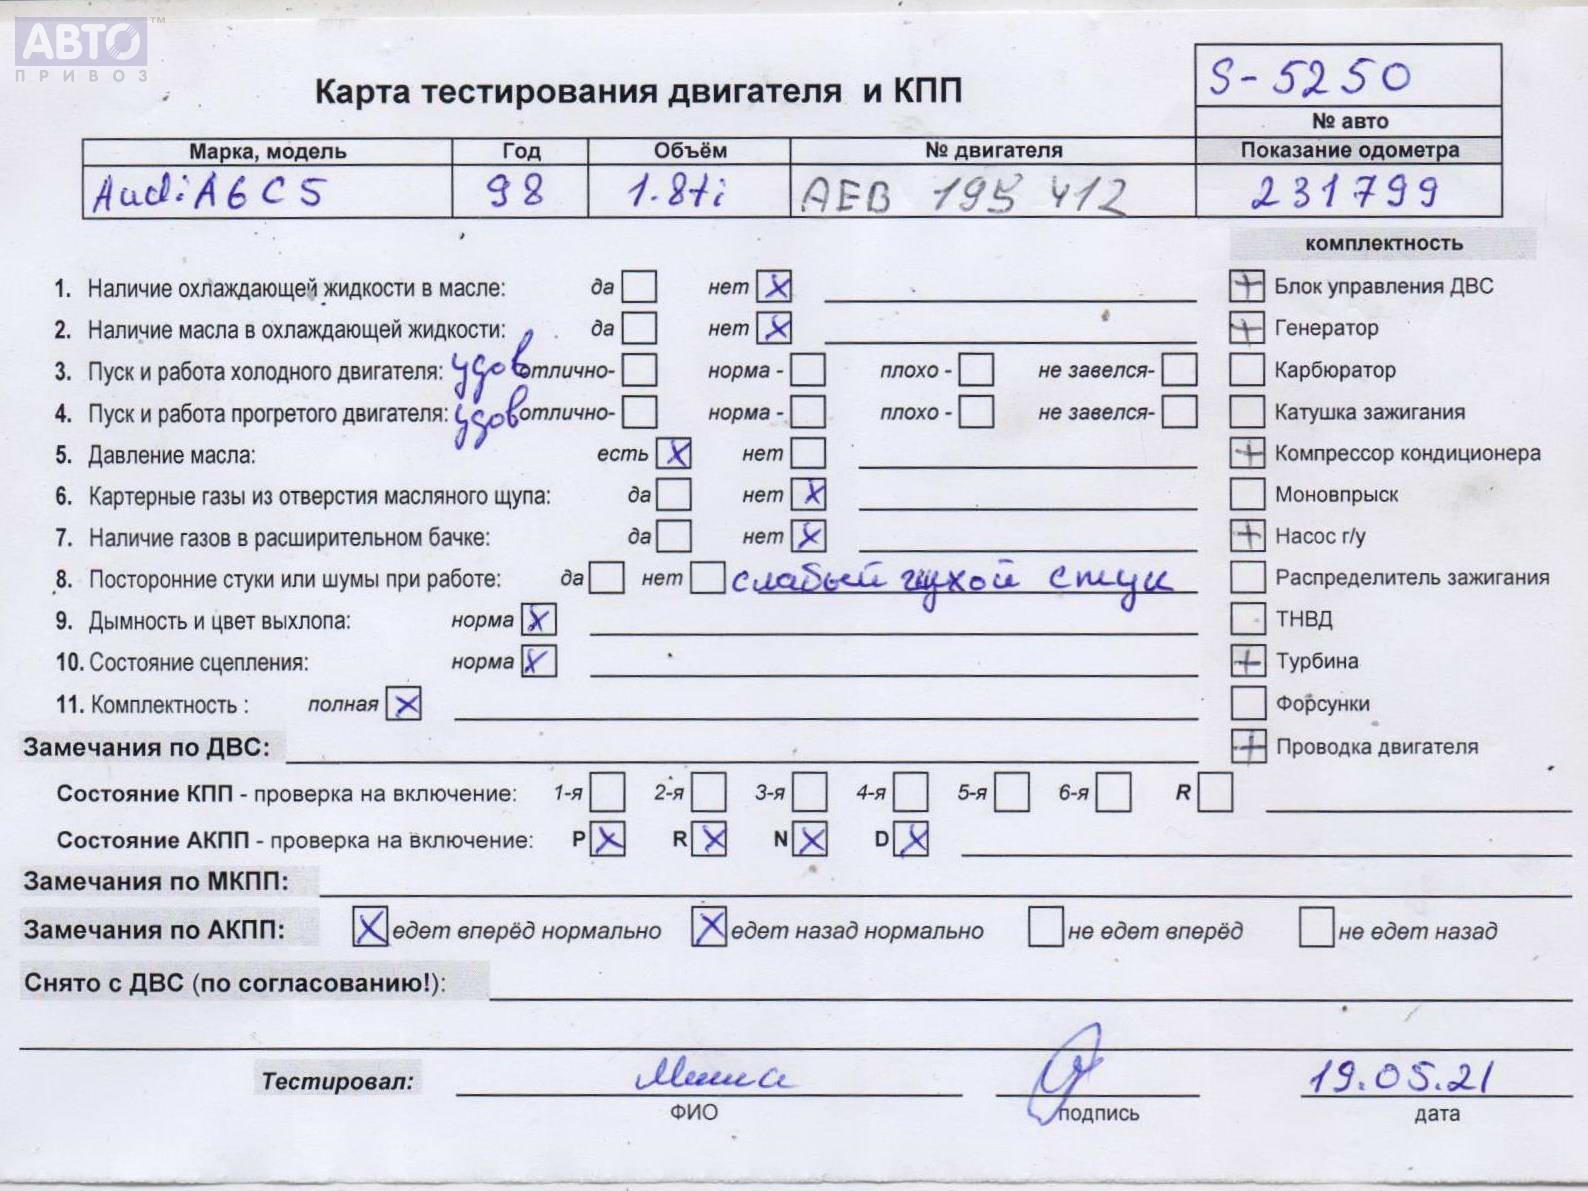 АВТО™
ПРИВОЗ
Карта тестирования двигателя и КПП
S-5250
№ авто
Марка, модель Год Объём № двигателя Показание одометра
Audi A6 C5 98 1.8ti AEB 195 412 231799
комплектность
1. Наличие охлаждающей жидкости в масле: да нет X + Блок управления ДВС
2. Наличие масла в охлаждающей жидкости: да нет X + Генератор
3. Пуск и работа холодного двигателя: удов отлично- норма - плохо - не завелся- Карбюратор
4. Пуск и работа прогретого двигателя: удов отлично- норма - плохо - не завелся- Катушка зажигания
5. Давление масла: есть X нет + Компрессор кондиционера
6. Картерные газы из отверстия масляного щупа: да нет X Моновпрыск
7. Наличие газов в расширительном бачке: да нет X + Насос г/у
8. Посторонние стуки или шумы при работе: да нет слабый глухой стук Распределитель зажигания
9. Дымность и цвет выхлопа: норма X ТНВД
10. Состояние сцепления: норма X + Турбина
11. Комплектность : полная X Форсунки
Замечания по ДВС: + Проводка двигателя
Состояние КПП - проверка на включение: 1-я 2-я 3-я 4-я 5-я 6-я R
Состояние АКПП - проверка на включение: P X R X N X D X
Замечания по МКПП:
Замечания по АКПП: X едет вперёд нормально X едет назад нормально не едет вперёд не едет назад
Снято с ДВС (по согласованию!):
Тестировал: Миша 19.05.21
ФИО подпись дата